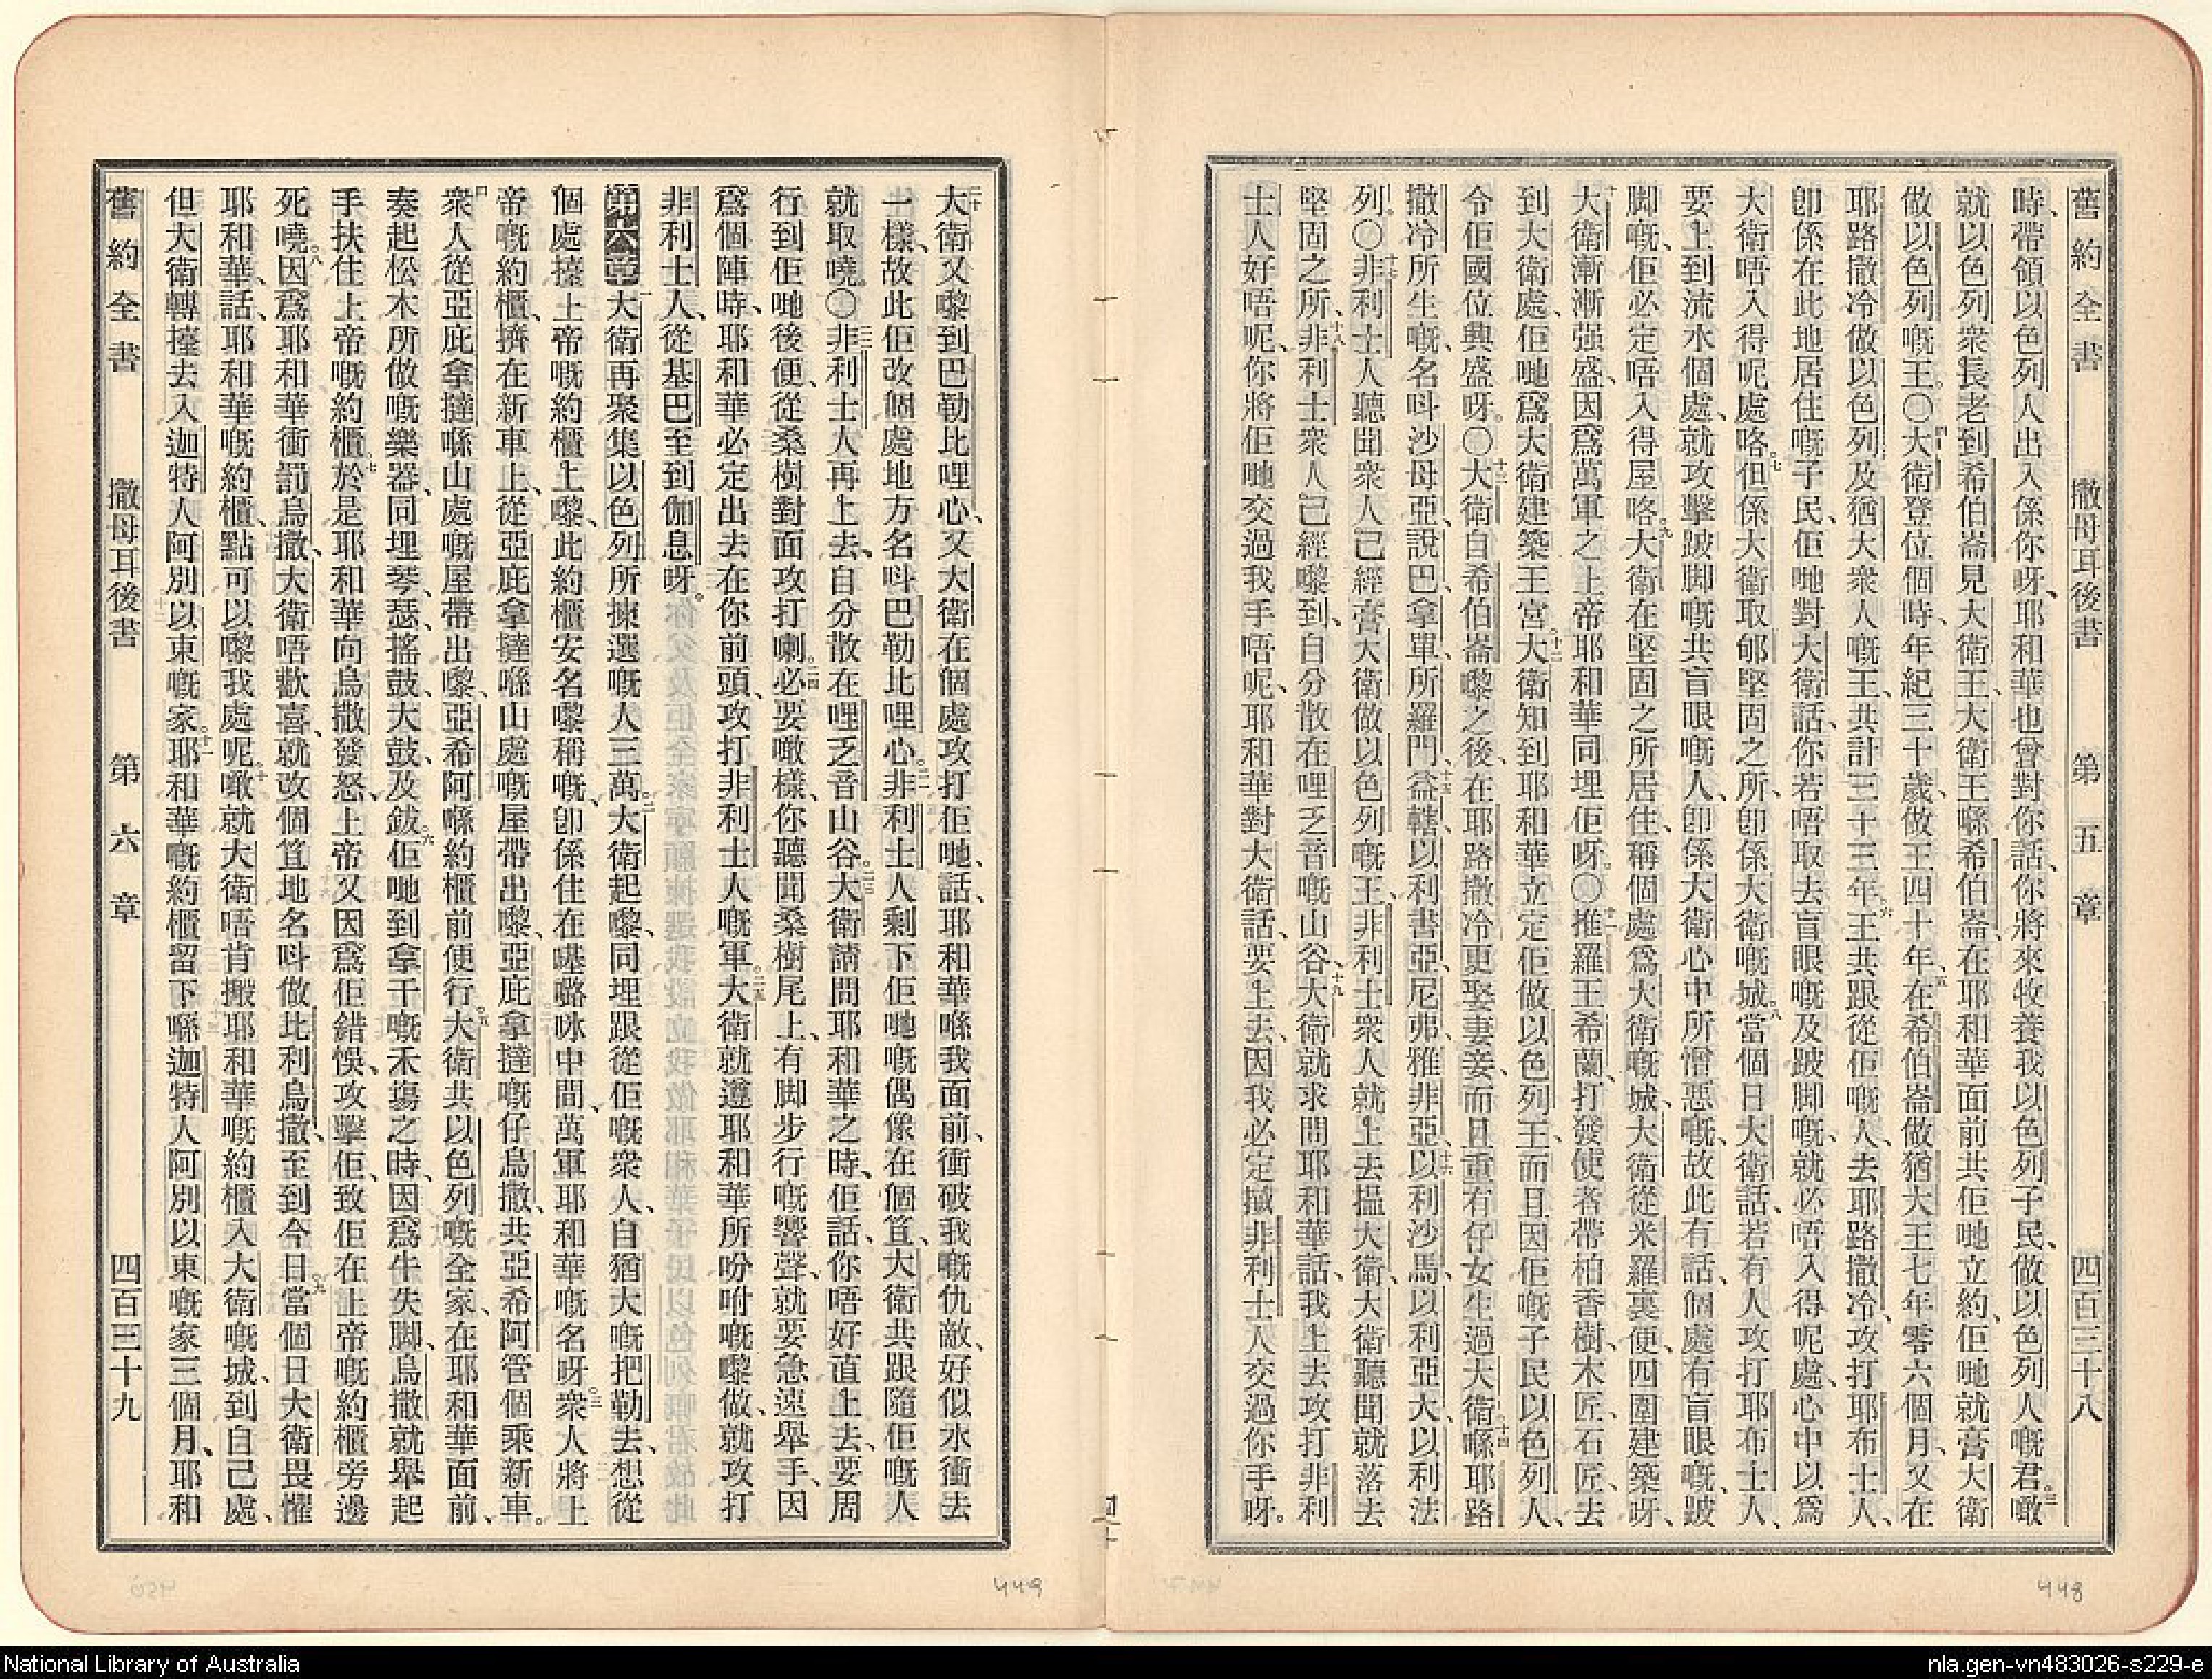 舊約全書　撒母耳後書　第五章　四百三十八
時、帶領以色列人出入係你呀、耶和華也曾對你話、你將來牧養我以色列子民、做以色列人嘅君。三噉
就以色列衆長老到希伯崙見大衛王、大衛王喺希伯崙、在耶和華面前共佢哋立約、佢哋就膏大衛
做以色列嘅王。〇四大衛登位個時、年紀三十歲、做王四十年、五在希伯崙做猶大王七年零六個月、又在
耶路撒冷做以色列及猶大衆人嘅王、共計三十三年。六王共跟從佢嘅人、去耶路撒冷、攻打耶布士人、
卽係在此地居住嘅子民、佢哋對大衛話、你若唔取去盲眼嘅及跛脚嘅、就必唔入得呢處、心中以爲
大衛唔入得呢處咯。七但係大衛取郇堅固之所、卽係大衛嘅城。八當個日大衛話、若有人攻打耶布士人、
要上到流水個處、就攻擊跛脚嘅共盲眼嘅人、卽係大衛心中所憎惡嘅、故此有話、個處有盲眼嘅、跛
脚嘅、佢必定唔入得屋咯。九大衛在堅固之所居住、稱個處爲大衛嘅城、大衛從米羅裏便四圍建築呀、
十大衛漸漸强盛、因爲萬軍之上帝耶和華同埋佢呀。〇十一推羅王希蘭、打發使者帶柏香樹、木匠、石匠、去
到大衛處、佢哋爲大衛建築王宮。十二大衛知到耶和華立定佢做以色列王、而且因佢嘅子民以色列人、
令佢國位興盛呀。〇十三大衛自希伯崙嚟之後、在耶路撒冷更娶妻妾、而且重有仔女生過大衛。十四喺耶路
撒冷所生嘅、名呌沙母亞、說巴、拿單、所羅門、十五益轄、以利書亞、尼弗、雅非亞、十六以利沙馬、以利亞大、以利法
列。〇十七非利士人聽聞衆人已經膏大衛做以色列嘅王、非利士衆人就上去搵大衛、大衛聽聞就落去
堅固之所、十八非利士衆人已經嚟到、自分散在哩乏音嘅山谷、十九大衛就求問耶和華話、我上去攻打非利
士人好唔呢、你將佢哋交過我手唔呢、耶和華對大衛話、要上去、因我必定㨢非利士人交過你手呀。
二十大衛又嚟到巴勒比哩心、又大衛在個處攻打佢哋、話、耶和華喺我面前、衝破我嘅仇敵、好似水衝去
一樣、故此佢改個處地方名呌巴勒比哩心。二一非利士人剩下佢哋嘅偶像在個笪、大衛共跟隨佢嘅人
就取嘵。〇二二非利士人再上去、自分散在哩乏音山谷。二三大衛請問耶和華之時、佢話、你唔好直上去、要周
行到佢哋後便、從桑樹對面攻打喇。二四必要噉樣、你聽聞桑樹尾上、有脚步行嘅響聲、就要急速舉手、因
爲個陣時、耶和華必定出去在你前頭、攻打非利士人嘅軍。二五大衛就遵耶和華所吩咐嘅嚟做、就攻打
非利士人、從基巴至到伽息呀。
第六章　一大衛再聚集以色列所揀選嘅人三萬。二大衛起嚟、同埋跟從佢嘅衆人、自猶大嘅把勒去、想從
個處擡上帝嘅約櫃上嚟、此約櫃安名嚟稱嘅、卽係住在𠼻𠸄咏中間、萬軍耶和華嘅名呀。三衆人將上
帝嘅約櫃、擠在新車上、從亞庇拿撻喺山處嘅屋帶出嚟、亞庇拿撻嘅仔烏撒、共亞希阿管個乘新車。
四衆人從亞庇拿撻喺山處嘅屋帶出嚟、亞希阿喺約櫃前便行。五大衛共以色列嘅全家、在耶和華面前、
奏起松木所做嘅樂器、同埋琴、瑟、搖鼓、大鼓、及鈸。六佢哋到拿干嘅禾塲之時、因爲牛失脚、烏撒就舉起
手扶住上帝嘅約櫃、七於是耶和華向烏撒發怒、上帝又因爲佢錯悞、攻擊佢、致佢在上帝嘅約櫃旁邊
死嘵。八因爲耶和華衝罰烏撒、大衛唔歡喜、就改個笪地名呌做比利烏撒、至到今日。九當個日大衛畏懼
耶和華、話、耶和華嘅約櫃、點可以嚟我處呢。十噉就大衛唔肯搬耶和華嘅約櫃入大衛嘅城、到自己處、
但大衛轉擡去入迦特人阿別以東嘅家。十一耶和華嘅約櫃留下喺迦特人阿別以東嘅家三個月、耶和
舊約全書　撒母耳後書　第六章　四百三十九
449
448
National Library of Australia
nla.gen-vn483026-s229-e